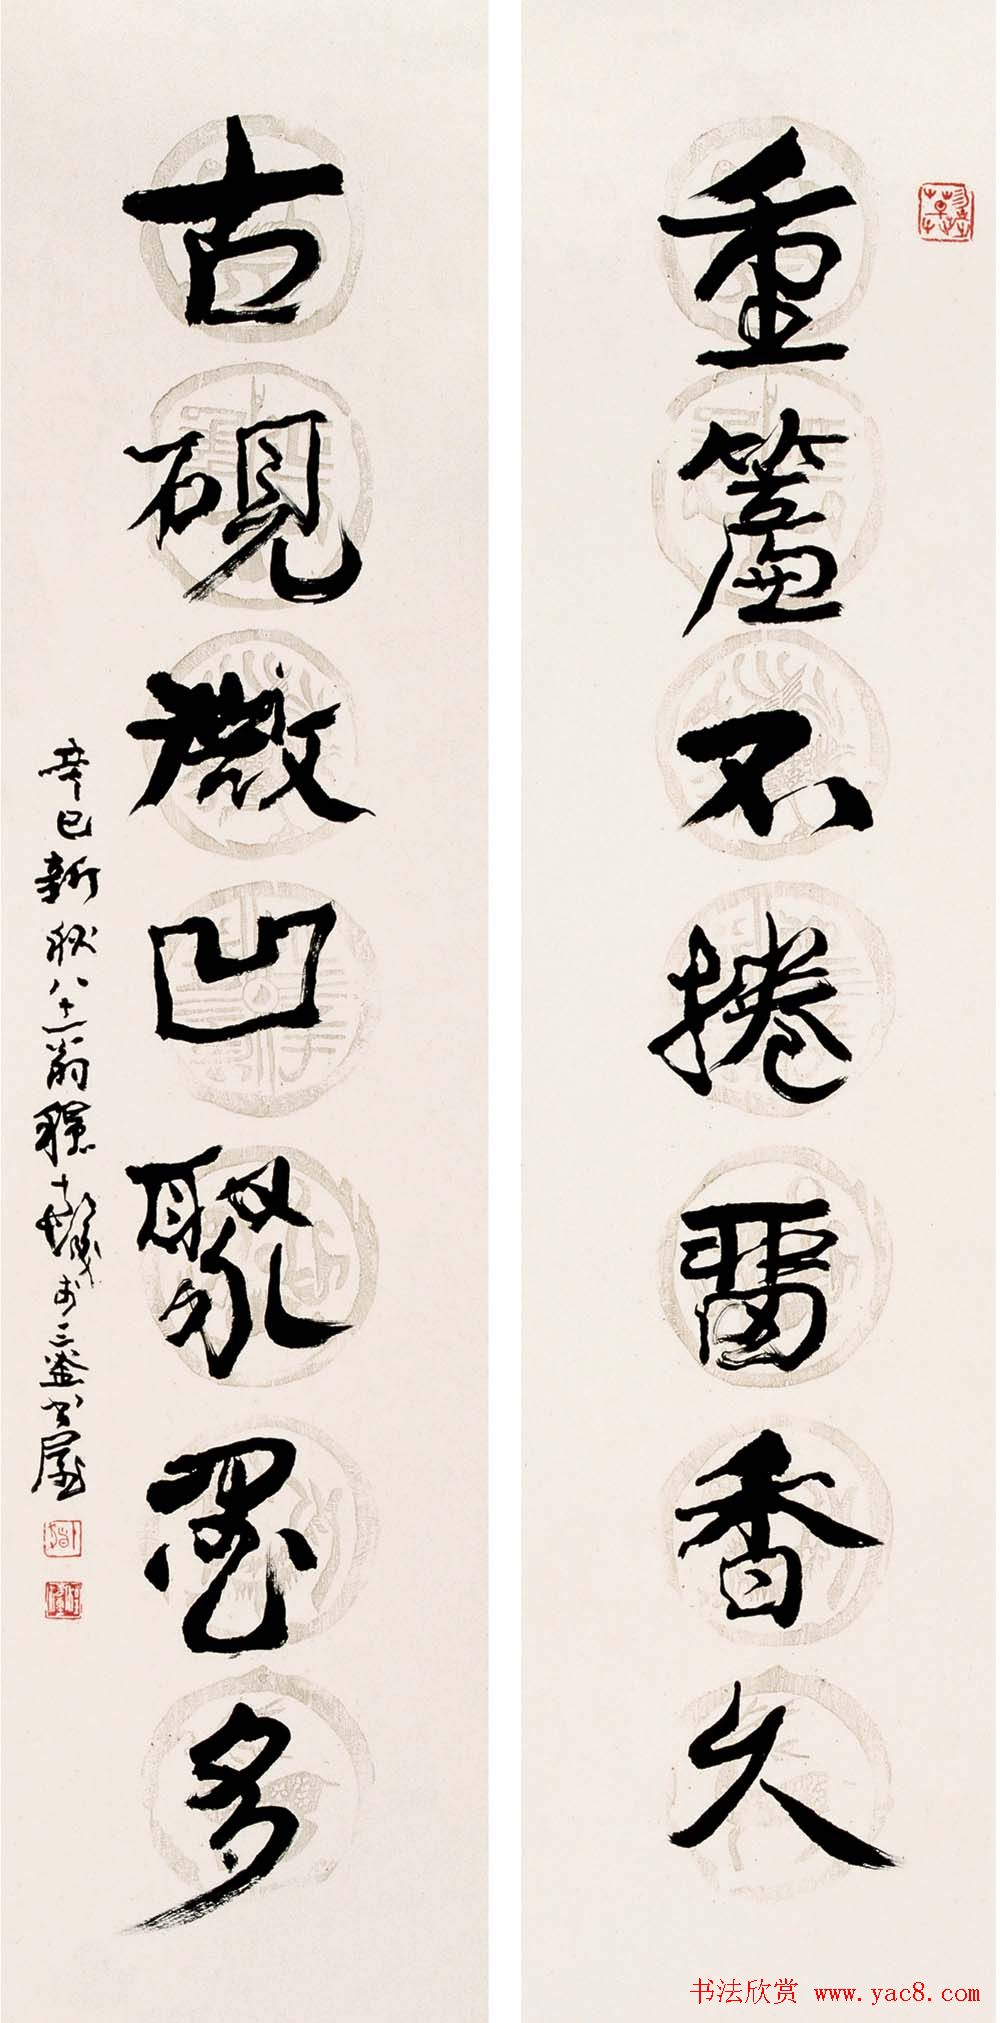 重簾不捲留香久
古硯微凹聚墨多
辛巳新秋八十一翁穩於三鉴书屋
书法欣赏 www.yac8.com